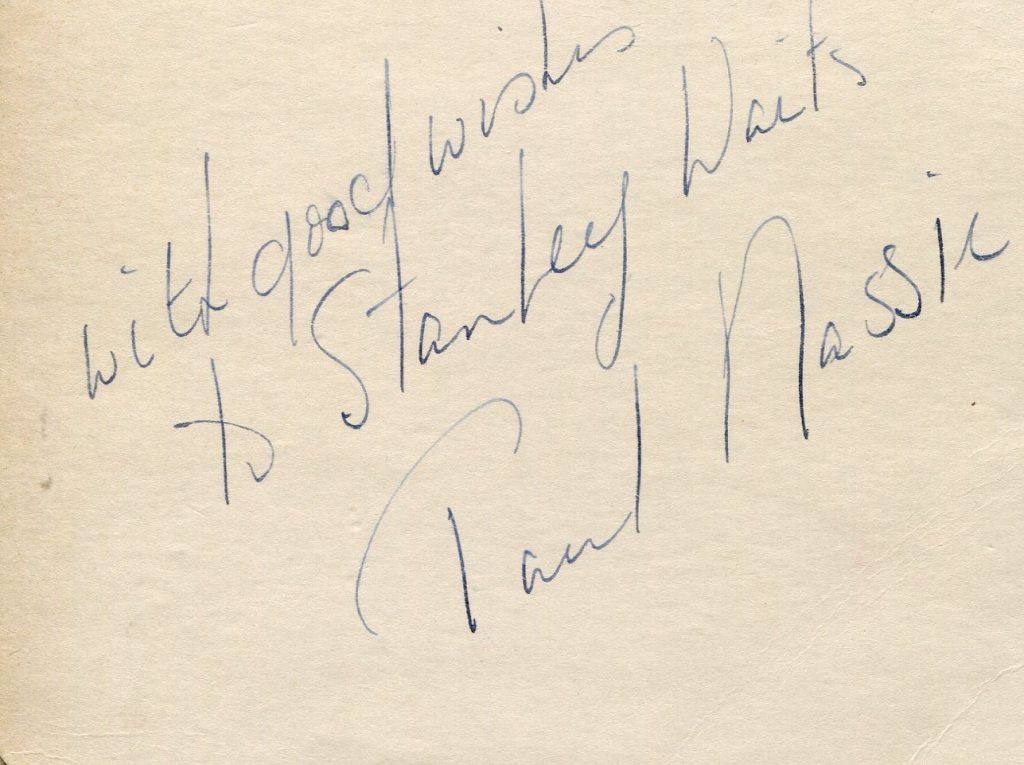 with good wishes
to Stanley Waits
Paul Massie